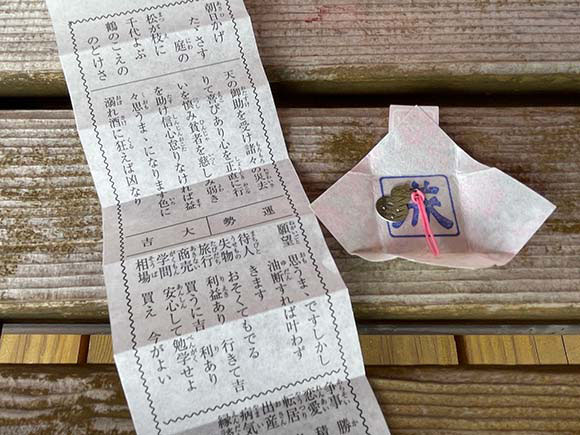 朝日かげ
たゞさす
庭の
松が枝に
千代よぶ
鶴のこえの
のどけさ
天の御助を受け諸々の災去
りて喜びあり心を正直に行
いを慎み貧者を慈しみ弱き
を助け信心怠りなければ益
々思うまゝになります色に
溺れ酒に狂えば凶なり
運勢
大吉
願望 思うまゝですしかし
油断すれば叶わず
待人 きます
失物 おそくてもでる
旅行 利益あり 行きて吉
商売 買うに吉 利あり
学問 安心して勉学せよ
相場 買え 今がよい
争事 勝
恋愛 積
転居
出産
病気
旅